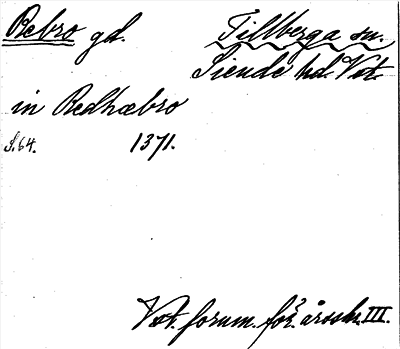 Rebro gd. Tillberga sn.
Siende hd. Vst.
in Redhæbro
S. 64. 1371.
Vst. fornm. för. årsskr. III.